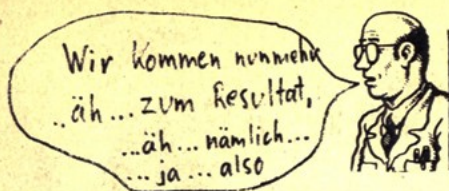 Wir kommen nunmehr
..äh... zum Resultat,
...äh... nämlich...
... ja... also